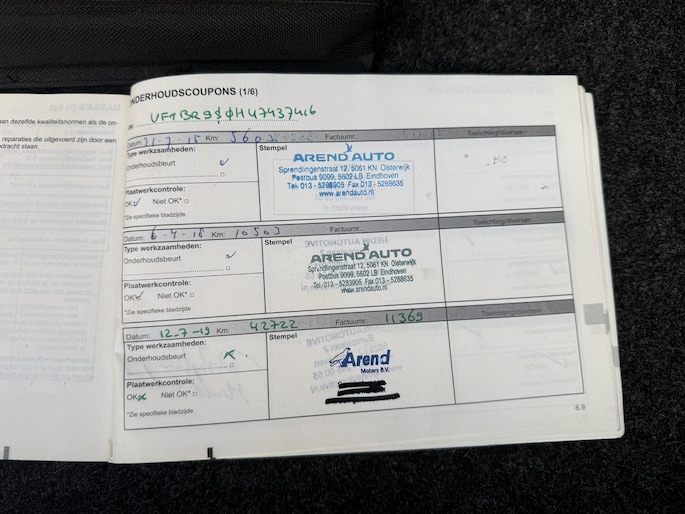 MASSA'S (in kg)
an dezelfde kwaliteitsnormen als de on-
reparaties die uitgevoerd zijn door een
dracht staan.
ONDERHOUDSCOUPONS (1/6)
Datum: Km: Factuurnr.: Toelichting/diversen
Type werkzaamheden:
Onderhoudsbeurt
Plaatwerkcontrole:
OK Niet OK*
*Zie specifieke bladzijde
Stempel
AREND AUTO
Sprendlingenstraat 12, 5061 KN Oisterwijk
Postbus 9099, 5602 LB Eindhoven
Tel. 013 - 5283905 Fax 013 - 5288635
www.arendauto.nl
Datum: 6-4-18 Km: 10503 Factuurnr.: Toelichting/diversen
Type werkzaamheden:
Onderhoudsbeurt
Plaatwerkcontrole:
OK Niet OK*
*Zie specifieke bladzijde
Stempel
AREND AUTO
Sprendlingenstraat 12, 5061 KN Oisterwijk
Postbus 9099, 5602 LB Eindhoven
Tel. 013 - 5283905 Fax 013 - 5288635
www.arendauto.nl
Datum: 12-7-19 Km: 42722 Factuurnr.: 11369 Toelichting/diversen
Type werkzaamheden:
Onderhoudsbeurt
Plaatwerkcontrole:
OK Niet OK*
*Zie specifieke bladzijde
Stempel
Arend
Motors B.V.
6.9